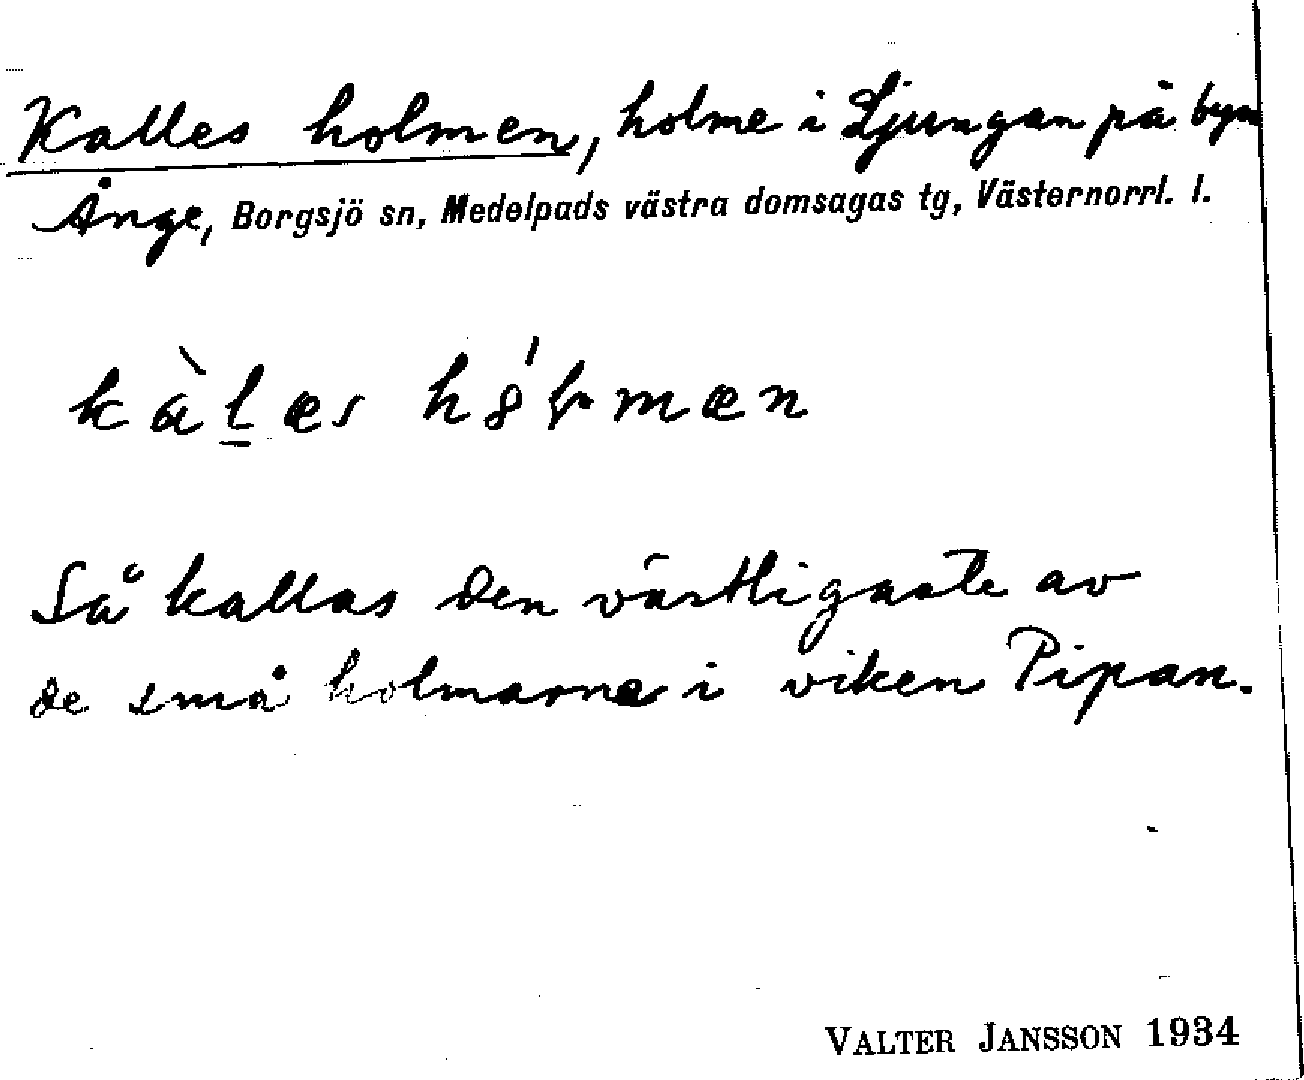 Kalles holmen, holme i Ljungan på byn
Ånge, Borgsjö sn, Medelpads västra domsagas tg, Västernorrl. l.
Så kallas den västligaste av
de små holmarna i viken Pipan.
VALTER JANSSON 1934